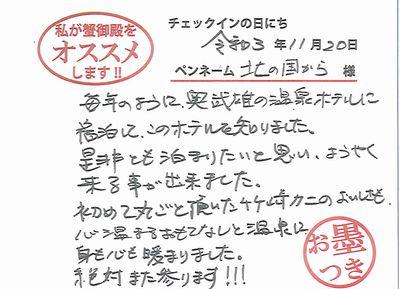 私が蟹御殿を
オススメ
します!!
チェックインの日にち
令和3年11月20日
ペンネーム 北の国から 様
毎年のように、奥武雄の温泉ホテルに
宿泊して、このホテルを知りました。
是非とも泊まりたいと思い、ようやく
来る事が出来ました。
初めて丸ごと頂いた竹崎カニのおいしさも、
心温まるおもてなしと温泉に
身も心も暖まりました。
絶対また参ります!!!
お墨
つき